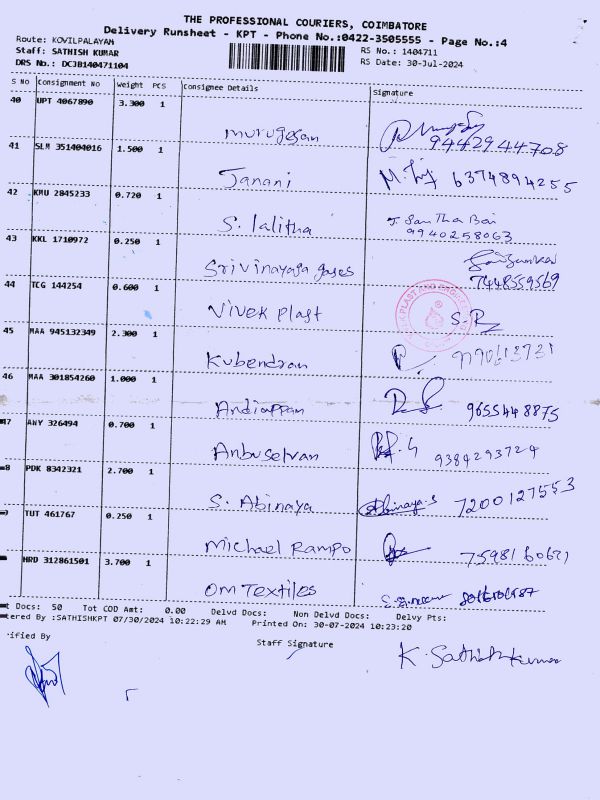 THE PROFESSIONAL COURIERS, COIMBATORE
Delivery Runsheet - KPT - Phone No.:0422-3505555 - Page No.:4
Route: KOVILPALAYAM
Staff: SATHISH KUMAR RS No.: 1404711
DRS No.: DCJB140471104 RS Date: 30-Jul-2024
S No Consignment No Weight PCS Consignee Details Signature
40 UPT 4067890 3.300 1
murugesan 9442944708
41 SLM 351404016 1.500 1
Janani 6374894255
42 KMU 2845233 0.720 1
S. lalitha J. San Tha Bai
9940258063
43 KKL 1710972 0.250 1
Srivinayaga gases 7448559569
44 TCG 144254 0.600 1
Vivek Plast S.R
45 MAA 945132349 2.300 1
Kubendran
46 MAA 301854260 1.000 1
Andiappan 9655448875
47 ANY 326494 0.700 1
Anbuselvan 9384293724
48 PDK 8342321 2.700 1
S. Abinaya Abinaya.S 7200127553
TUT 461767 0.250 1
Michael Rampo
HRD 312861501 3.700 1
Om Textiles
t Docs: 50 Tot COD Amt: 0.00 Delvd Docs: Non Delvd Docs: Delvy Pts:
tered By :SATHISHKPT 07/30/2024 10:22:29 AM Printed On: 30-07-2024 10:23:20
rified By Staff Signature
K. Sathish kumar